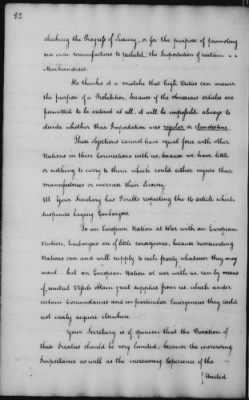 82
checking the Progress of Luxury, or for the purpose of promoting
our own manufactures to restrict, the Importation of certain
Merchandizes.
He thinks it a mistake that high Duties can answer
the purpose of a Prohibition, because if the obnoxious articles are
permitted to be entered at all, it will be impossible always to
decide whether their Importation was regular or clandestine.
These Objections cannot have equal force with other
Nations in their Connections with us, because we have little
or nothing to carry to them which could either injure their
manufactories or increase their Luxury.
Your Secretary has Doubts respecting the 16 article which
suspends Laying Embargoes
To an European Nation at War with an European
Nation, Embargoes are of little consequence, because surrounding
Nations can and will supply to each party whatever they may
want but an European Nation at war with us, can by means
of neutral Vessels obtain great supplies from us, which under
certain Circumstances and in particular Emergencies they could
not easily acquire elsewhere
Your Secretary is of opinion that the Duration of
these Treaties should be very limited, because the increasing
Importance as well as the increasing Experience of the
United